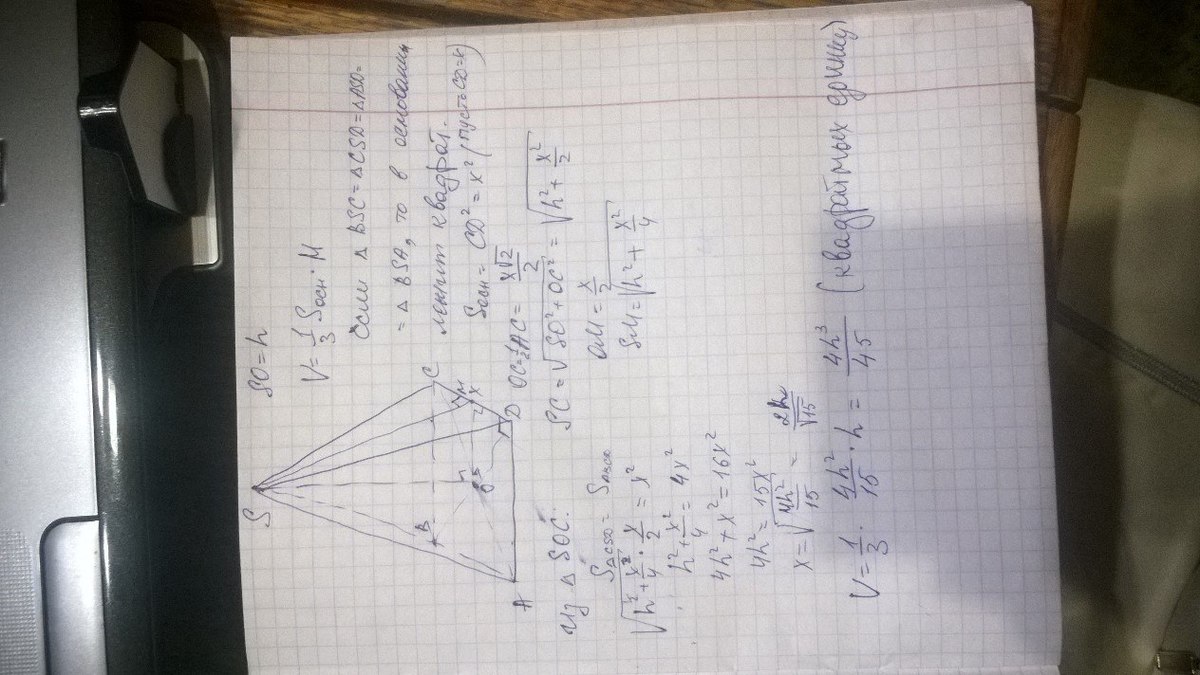 S
SO = h
V = 1/3 Sосн · H
Если △BSC = △CSD = △ASD =
= △BSA, то в основании
лежит квадрат.
Sосн = CD² = x² (пусть CD = x)
A
B
C
D
M
x
O
OC = 1/2 AC = x√2/2
Из △SOC:
SC = √(SO² + OC²) = √(h² + x²/2)
OM = x/2
SM = √(h² + x²/4)
S△CSD = SABCD
√(h² + x²/4) · x/2 = x²
h² + x²/4 = 4x²
4h² + x² = 16x²
4h² = 15x²
x = √(4h²/15) = 2h/√15
V = 1/3 · 4h²/15 · h = 4h³/45 (квадратных единиц)